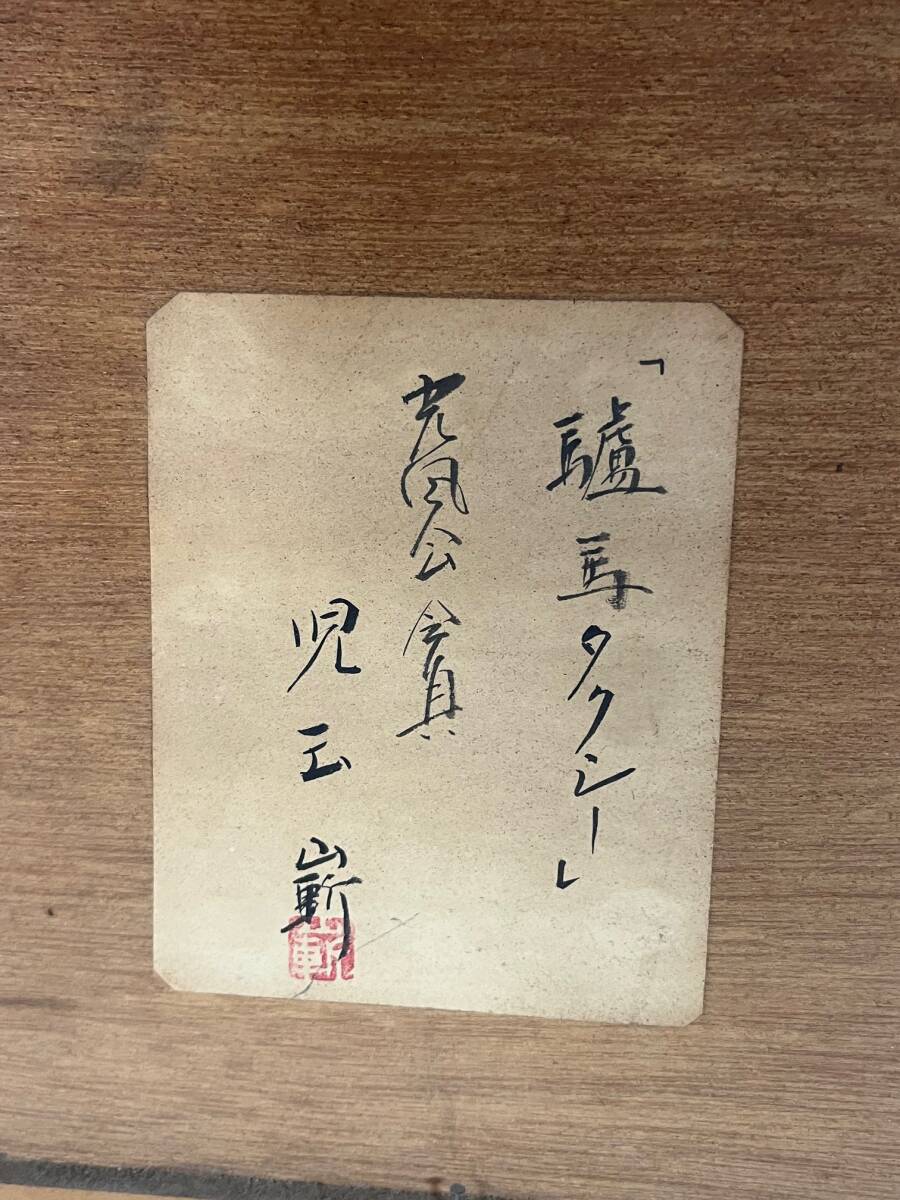 「驢馬タクシー」
光風会会員
児玉嶄
嶄